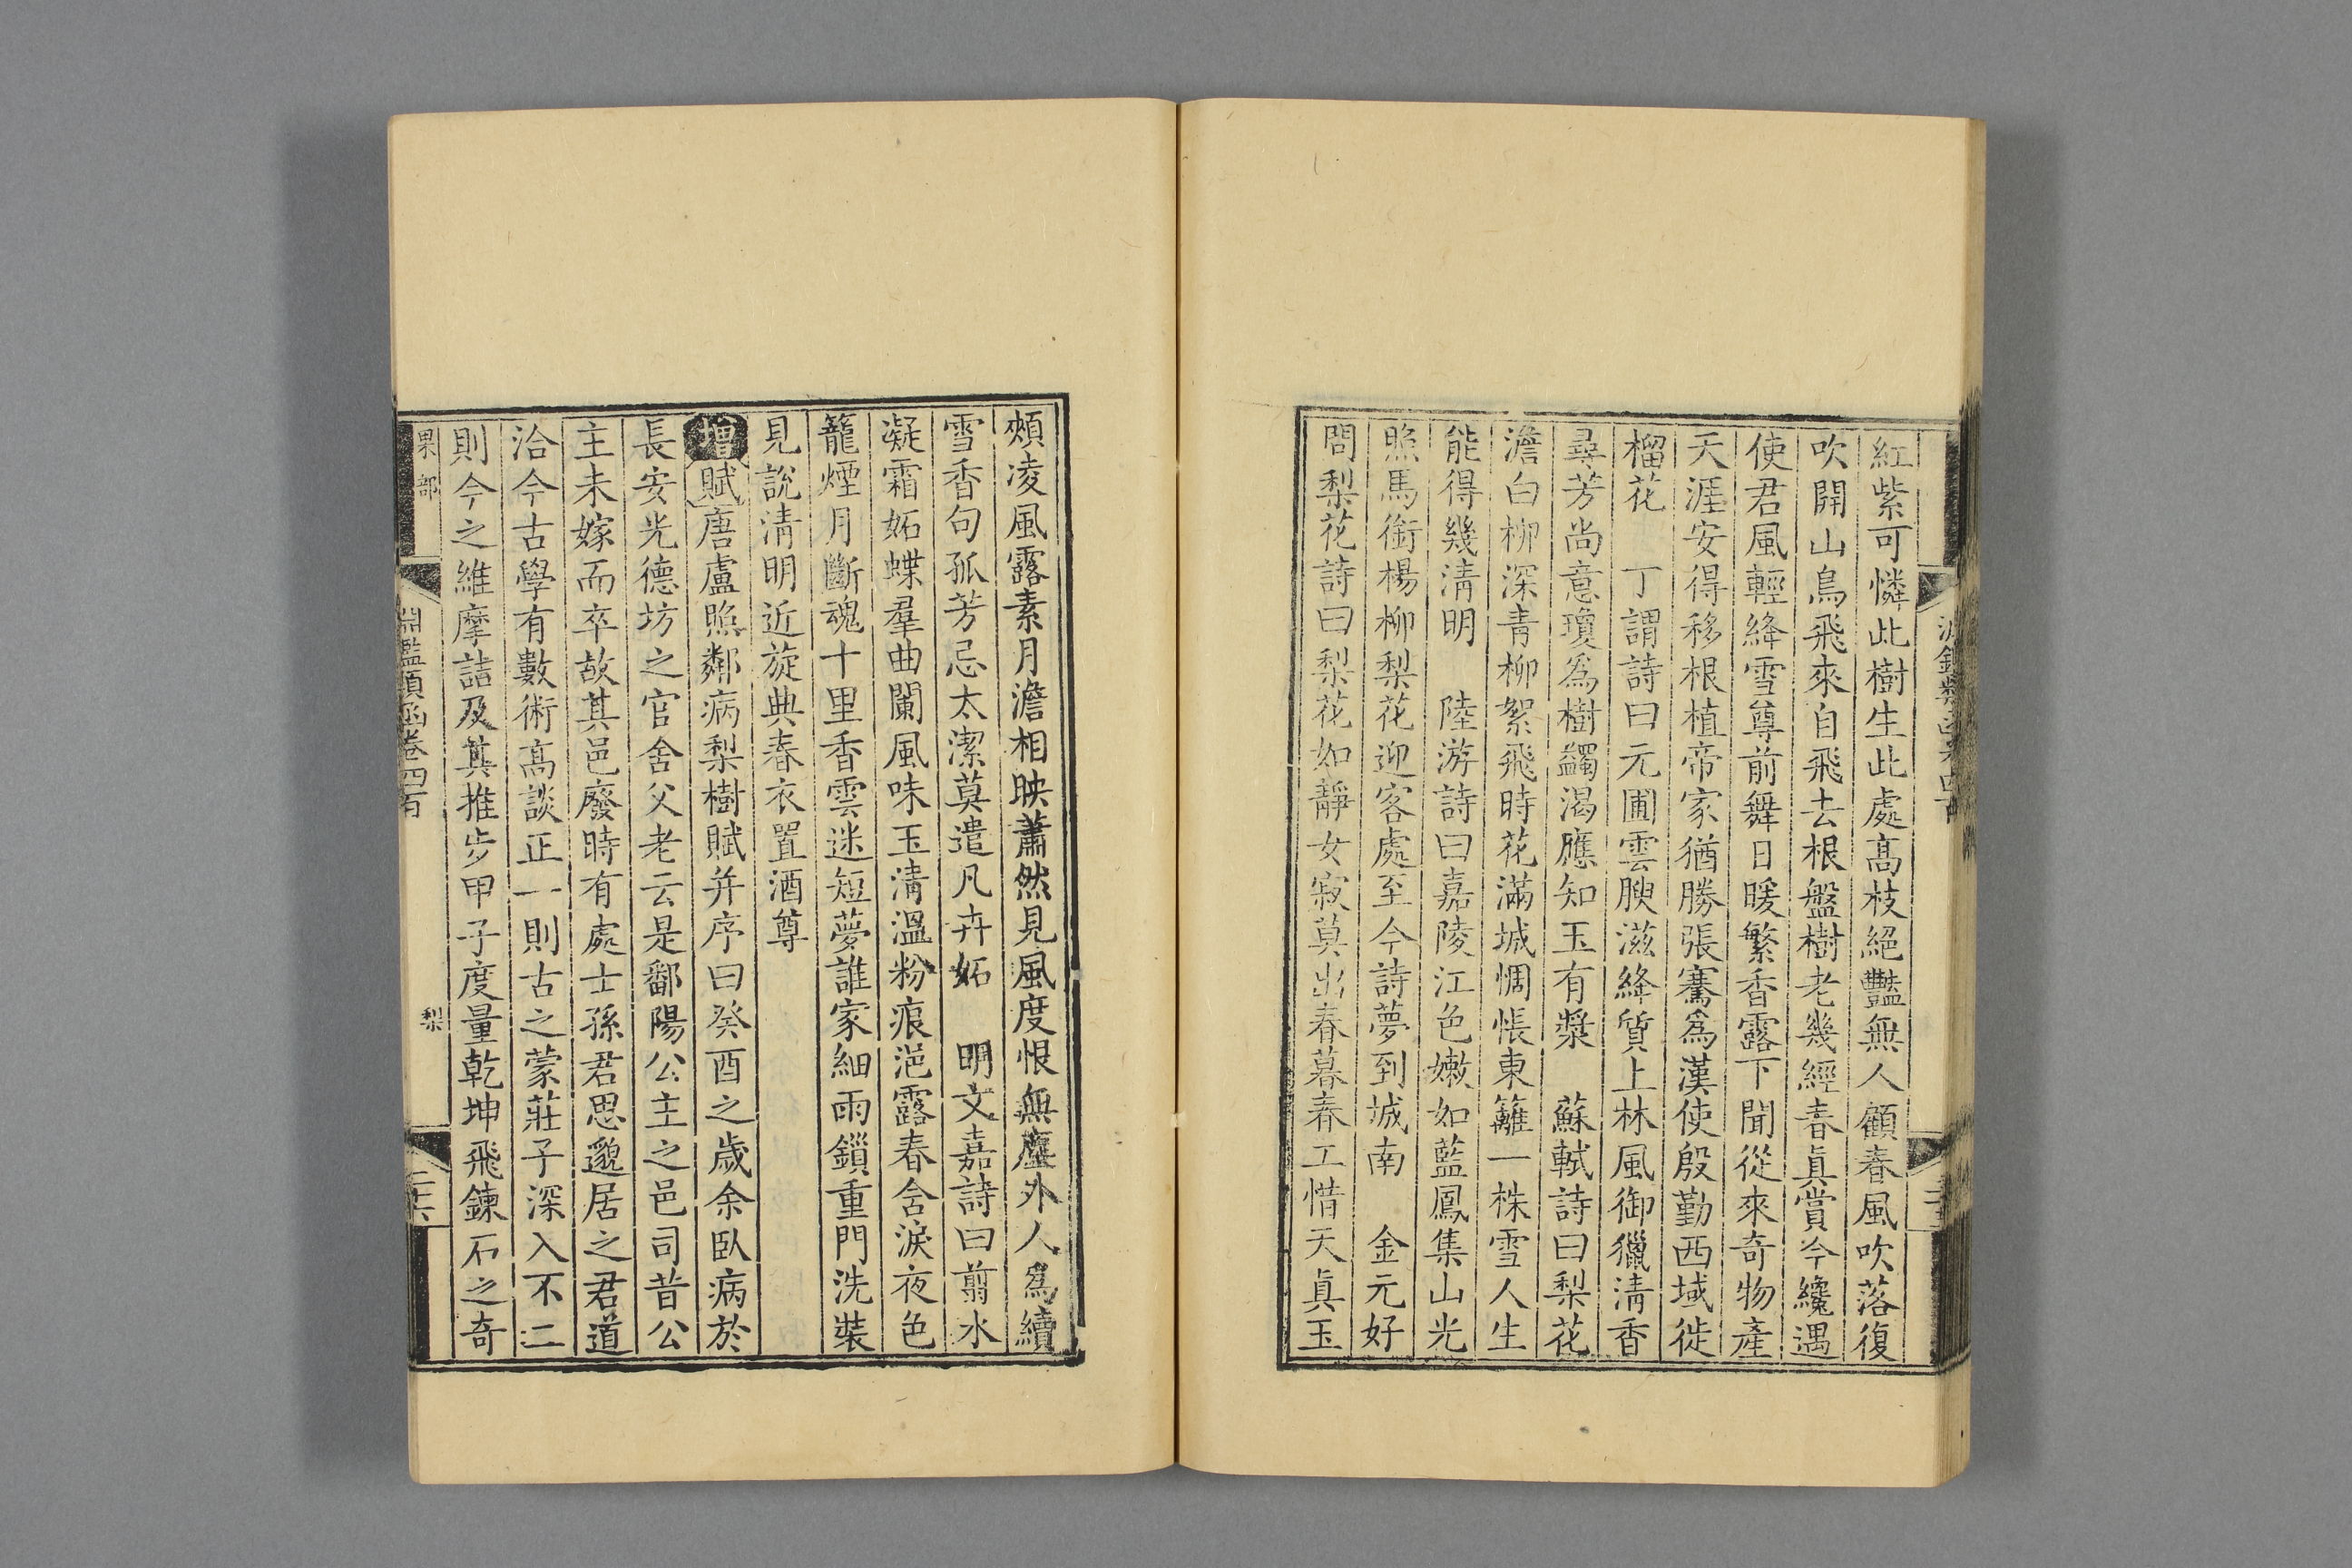 紅紫可憐此樹生此處高枝絕豔無人顧春風吹落復
吹開山鳥飛來自飛去根盤樹老幾經春眞賞今纔遇
使君風輕絳雪尊前舞日暖繁香露下聞從來奇物產
天涯安得移根植帝家猶勝張騫爲漢使殷勤西域徙
榴花　丁謂詩曰元圃雲腴滋絳質上林風御獵淸香
尋芳尚意瓊爲樹蠲渴應知玉有漿　蘇軾詩曰梨花
澹白柳深靑柳絮飛時花滿城惆悵東籬一株雪人生
能得幾淸明　陸游詩曰嘉陵江色嫩如藍鳳集山光
照馬銜楊柳梨花迎客處至今詩夢到城南　金元好
問梨花詩曰梨花如靜女寂莫出春暮春工惜天眞玉
頰凌風露素月澹相映蕭然見風度恨無塵外人爲續
雪香句孤芳忌太潔莫遣凡卉妬　明文嘉詩曰翦水
凝霜妬蝶羣曲闌風味玉淸溫粉痕浥露春含淚夜色
籠煙月斷魂十里香雲迷短夢誰家細雨鎖重門洗裝
見說淸明近旋典春衣置酒尊
增賦唐盧照鄰病梨樹賦并序曰癸酉之歲余臥病於
長安光德坊之官舍父老云是鄱陽公主之邑司昔公
主未嫁而卒故其邑廢時有處士孫君思邈居之君道
洽今古學有數術高談正一則古之蒙莊子深入不二
則今之維摩詰及其推步甲子度量乾坤飛鍊石之奇
果部
淵鑑類函卷四百
梨